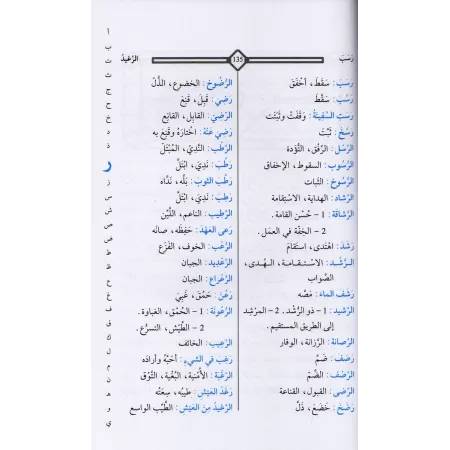 رَسَبَ
135
الرِّعْديدُ
رَسَبَ: سَقَطَ، أَخْفَقَ
رَسَّبَ: سَقَطَ
رَسَتِ السَّفينَةُ: وَقَفَتْ وثَبَتَت
رَسَخَ: ثَبَتَ
الرِّسْل: الرِّفْق، التُّؤَدة
الرُّسُوب: السقوط، الإخفاق
الرُّسوخ: الثبات
الرَّشاد: الهداية، الاسْتِقامة
الرَّشاقَة: 1 – حُسْن القامة.
2 – الخِفّة في العمل.
رَشَدَ: اهْتدى، استَقامَ
الـرُّشْـد: الاسْـتـقـامـة، الـهـدى،
الصَّواب
رَشَف الماءَ: مَصَّه
الرَّشيد: 1 – ذو الرُّشْد. 2 – المرْشِد
إلى الطريق المستقيم.
الرَّصانة: الرَّزانة، الوقار
رَصَفَ: ضَمَّ
الرَّصْف: الضَّمّ
الرِّضى: القبول، القناعة
رَضَخَ: خَضَعَ، ذَلَّ
الرُّضُوخ: الخضوع، الذُّلّ
رَضِيَ: قَبِلَ، قَنِعَ
الرَّضِيّ: القابِل، القانِع
رَضِيَ عَنْهُ: اخْتارَهُ وقَنِعَ بِه
الرَّطْب: النَّدِيّ، المُبْتَلّ
رَطُبَ: نَدِيَ، ابْتَلَّ
رَطَّب الثوبَ: بَلَّه، نَدَّاه
رَطِبَ: نَدِيَ، ابْتَلَّ
الرَّطيب: الناعم، اللَّيِّن
رَعى العَهْدَ: حَفِظَه، صانَه
الرُّعْب: الخوف، الفَزَع
الرِّعْدِيد: الجبان
الرَّعْراع: الجبان
رَعُنَ: حَمُقَ، غَبِيَ
الرُّعُونَة: 1 – الحُمْق، الغباوة.
2 – الطَّيْش، التسرُّع.
الرَّعِيب: الخائف
رَغِب في الشيءِ: أحَبَّهُ وأرادَه
الرَّغْبَة: الأُمْنِية، البُغْية، التَّوْق
رَغَد العَيْش: طيبُه، سِعَتُه
الرَّغيدُ مِنَ العَيْش: الطَّيِّب الواسع
ا
ب
ت
ث
ج
ح
خ
د
ذ
ر
ز
س
ش
ص
ض
ط
ظ
ع
غ
ف
ق
ك
ل
م
ن
هـ
و
ي